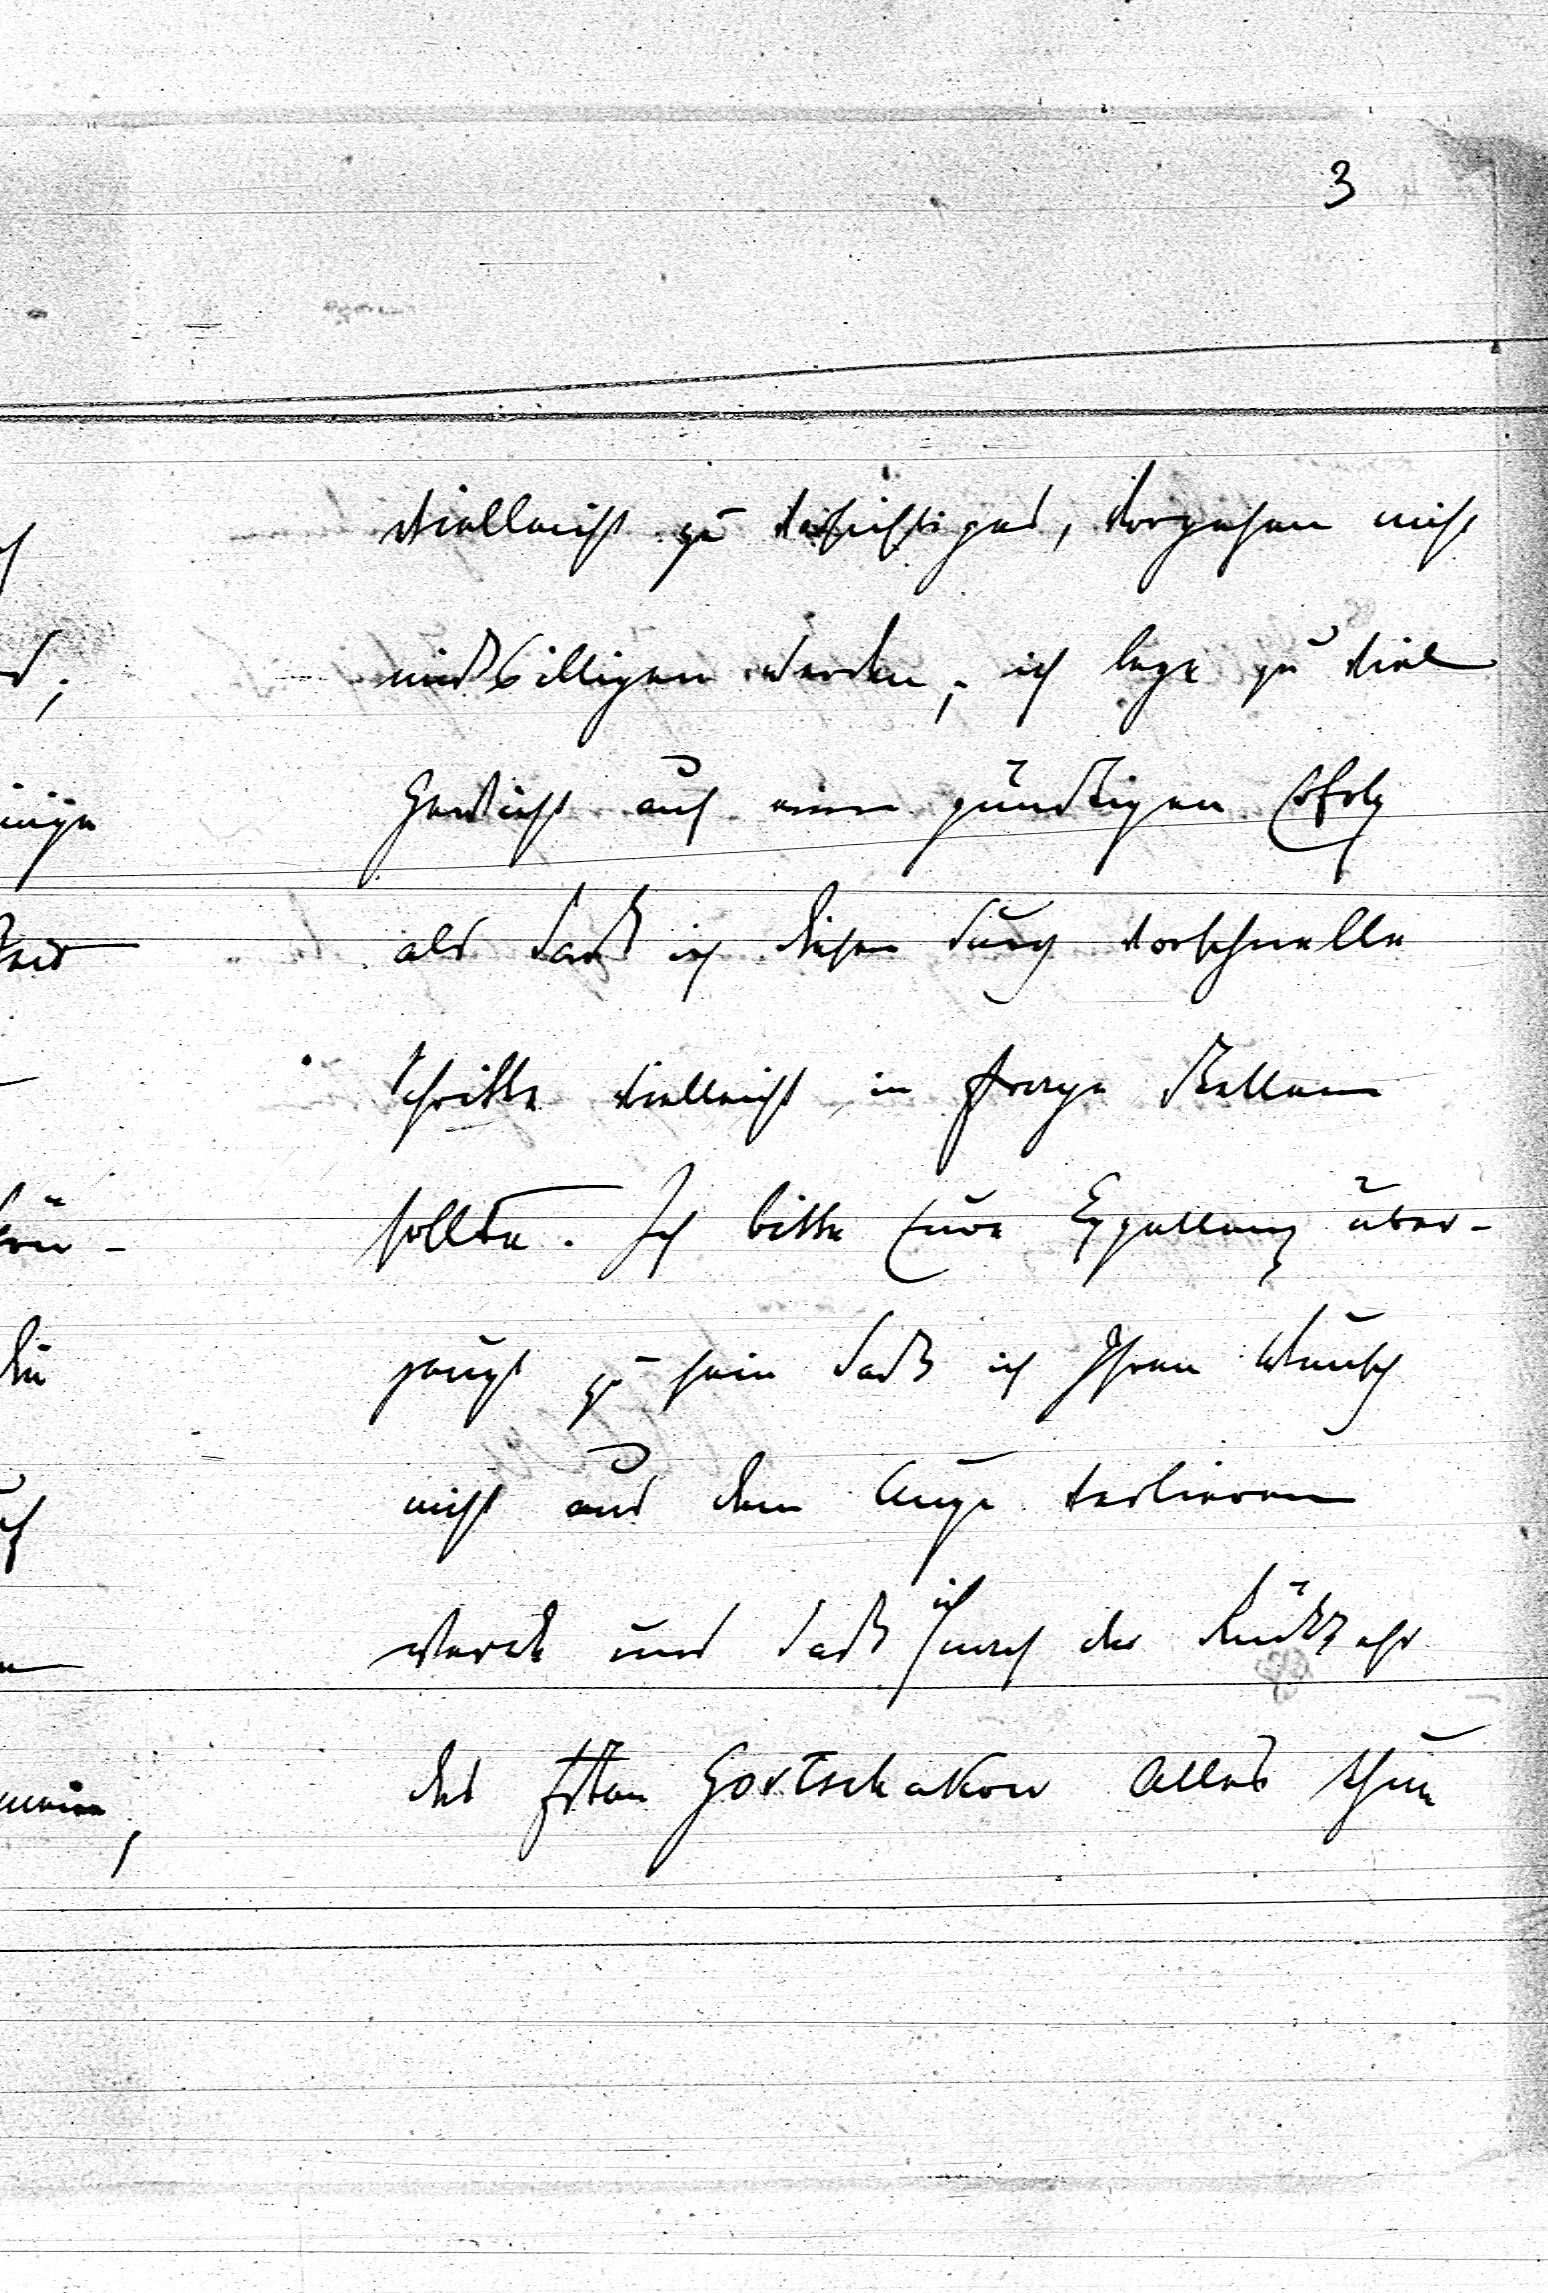 3
vielleicht zu vorsichtiges, Vorgehen nicht
mißbilligen werden; ich lege zu viel
Gewicht auf einen günstigen Erfolg
als daß ich diesen durch vorschnelle
Schritte vielleicht in Frage stellen
sollte. Ich bitte Eure Exzellenz über-
zeugt zu sein daß ich Ihren Wunsch
nicht aus dem Auge verlieren
werde und daß ich nach der Rückkehr
des Fürsten Gortschakow Alles thun